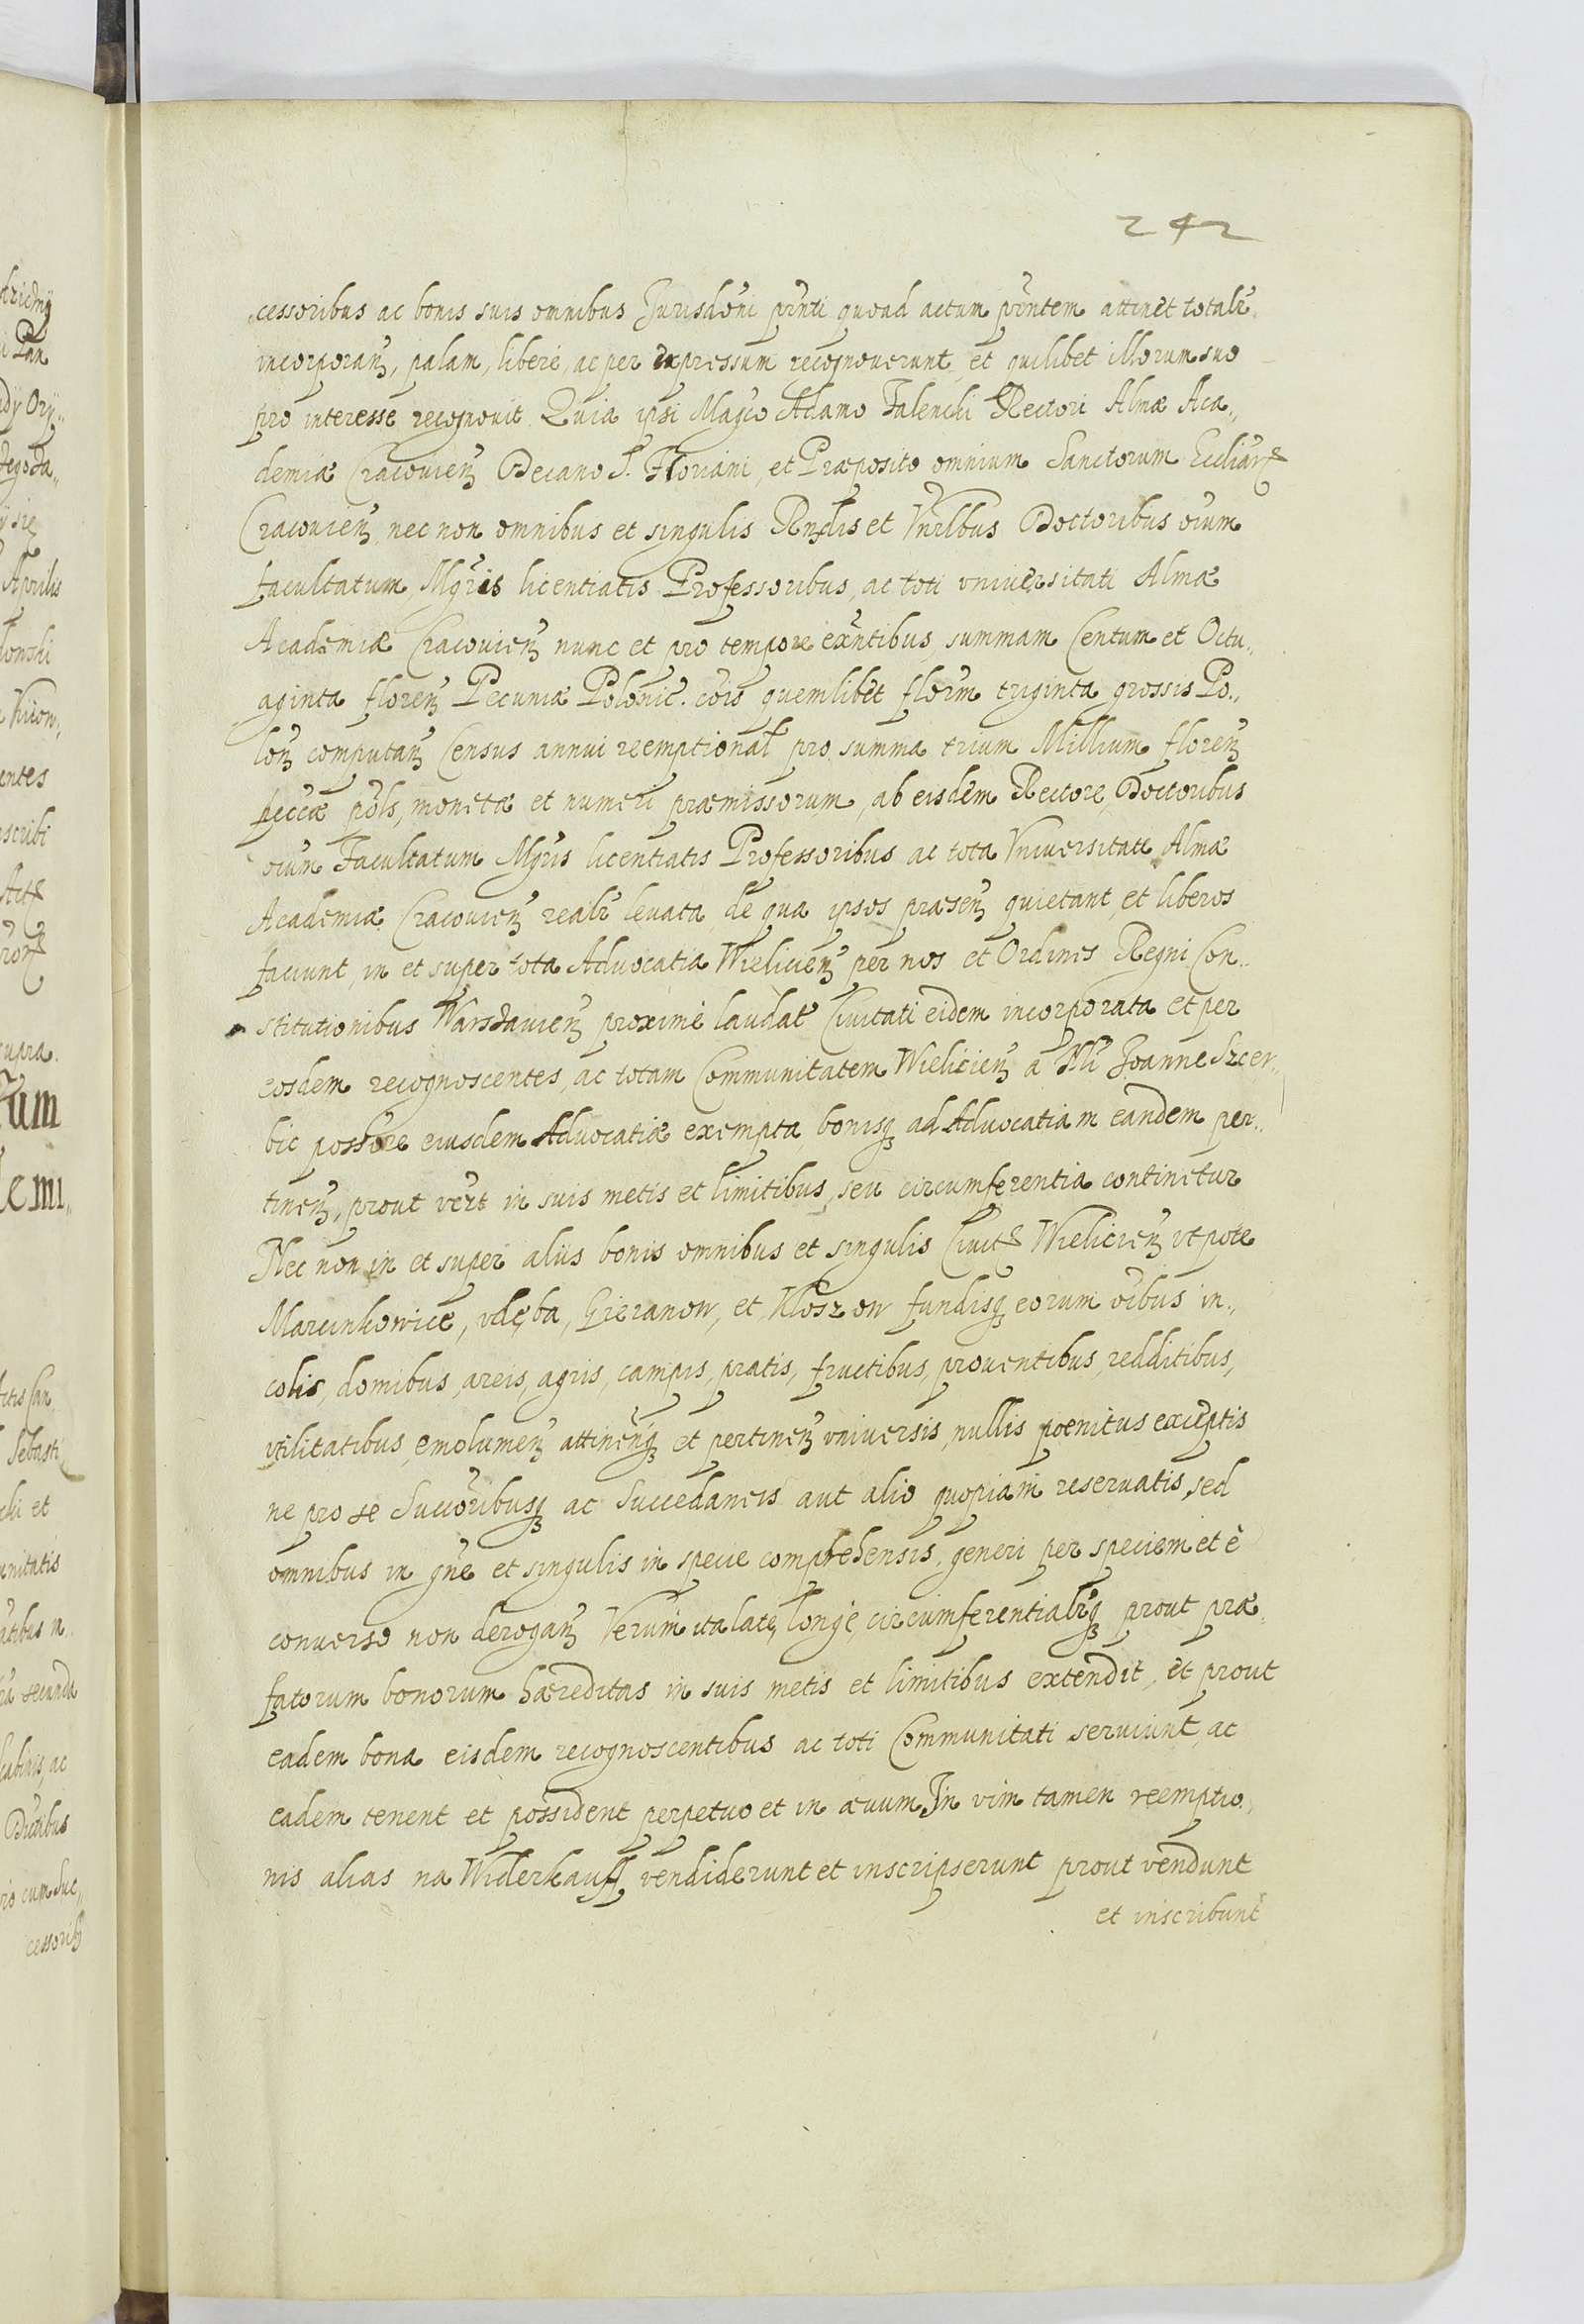 242
cessoribus ac bonis suis omnibus Jurisdōni pn̄ti quoad actum pn̄tem attinet totalr̄
incorporan̄, palam, liberè, ac per expressum recognoverunt, et quilibet illorum suo
pro interesse recognovit Quia ipsi Magco Adamo Falencki Rectori Almæ Aca„
demiæ Cracovien̄ Decano S. Floriani, et Præposito omnium Sanctorum Eccliar̄
Cracovien̄ nec non omnibus et singulis Rndis et Vnrlbus Doctoribus oium
facultatum Mgr̄is licentiatis Professoribus, ac toti vniversitati Almæ
Academiæ Cracovien̄ nunc et pro tempore exn̄tibus summam Centum et Octu„
aginta floren̄ Pecuniæ Polonic̄. cois quemlibet flor̄m triginta grossis Po„
lon̄ computan̄ Census annui reemptional̄ pro summa trium Millium floren̄
pecc̄æ pols, monetæ et numeri præmissorum, ab eisdem Rectore Doctoribus
oium Facultatum Mgr̄is licentiatis Professoribus ac tota Vniversitate Almæ
Academiæ Cracovien̄ realr̄ levata, de qua ipsos præsen̄ quietant et liberos
faciunt, in et super tota Advocatia Wielicien̄ per nos et Ordines Regni Con„
stitutionibus Warsavien̄ proximè laudat̄ Civitati eidem incorporata et per
eosdem recognoscentes, ac totam Communitatem Wielicien̄ a Nli Joanne Szcer„
bic possore eiusdem Advocatiæ exempta bonisq̃ ad Advocatiam eandem per„
tinen̄, prout vert in suis metis et limitibus, seu circumferentia continetur
Nec non in et super aliis bonis omnibus et singulis Civit̄ Wielicien̄ vt pote
Marcinkowice, vdęba, Gieranow, et Kłoszow fundisq̃ eorum oibus in„
colis, domibus, areis, agris, campis, pratis, fructibus, proventibus, redditibus,
vtilitatibus, emolumen̄ attinen̄q̃ et pertinen̄ vniversis, nullis poenitus exceptis
ne pro se Succōribusq̃ ac Succedaneis aut alio quopiam reservatis, sed
omnibus in gn̄e et singulis in specie comprehensis, generi per speciem et è
converso non derogan̄ Verum ita latè, longè, circumferentialr̄q̃ prout præ„
fatorum bonorum hæreditas in suis metis et limitibus extendit, et prout
eadem bona eisdem recognoscentibus ac toti Communitati serviunt, ac
eadem tenent et possident perpetuo et in ævum In vim tamen reemptio„
nis alias na Widerkauff vendiderunt et inscripserunt prout vendunt
et inscribunt